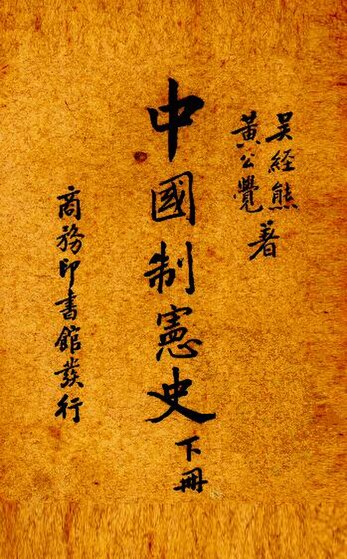 吳經熊
黃公覺
著
中國制憲史
下冊
商務印書館發行